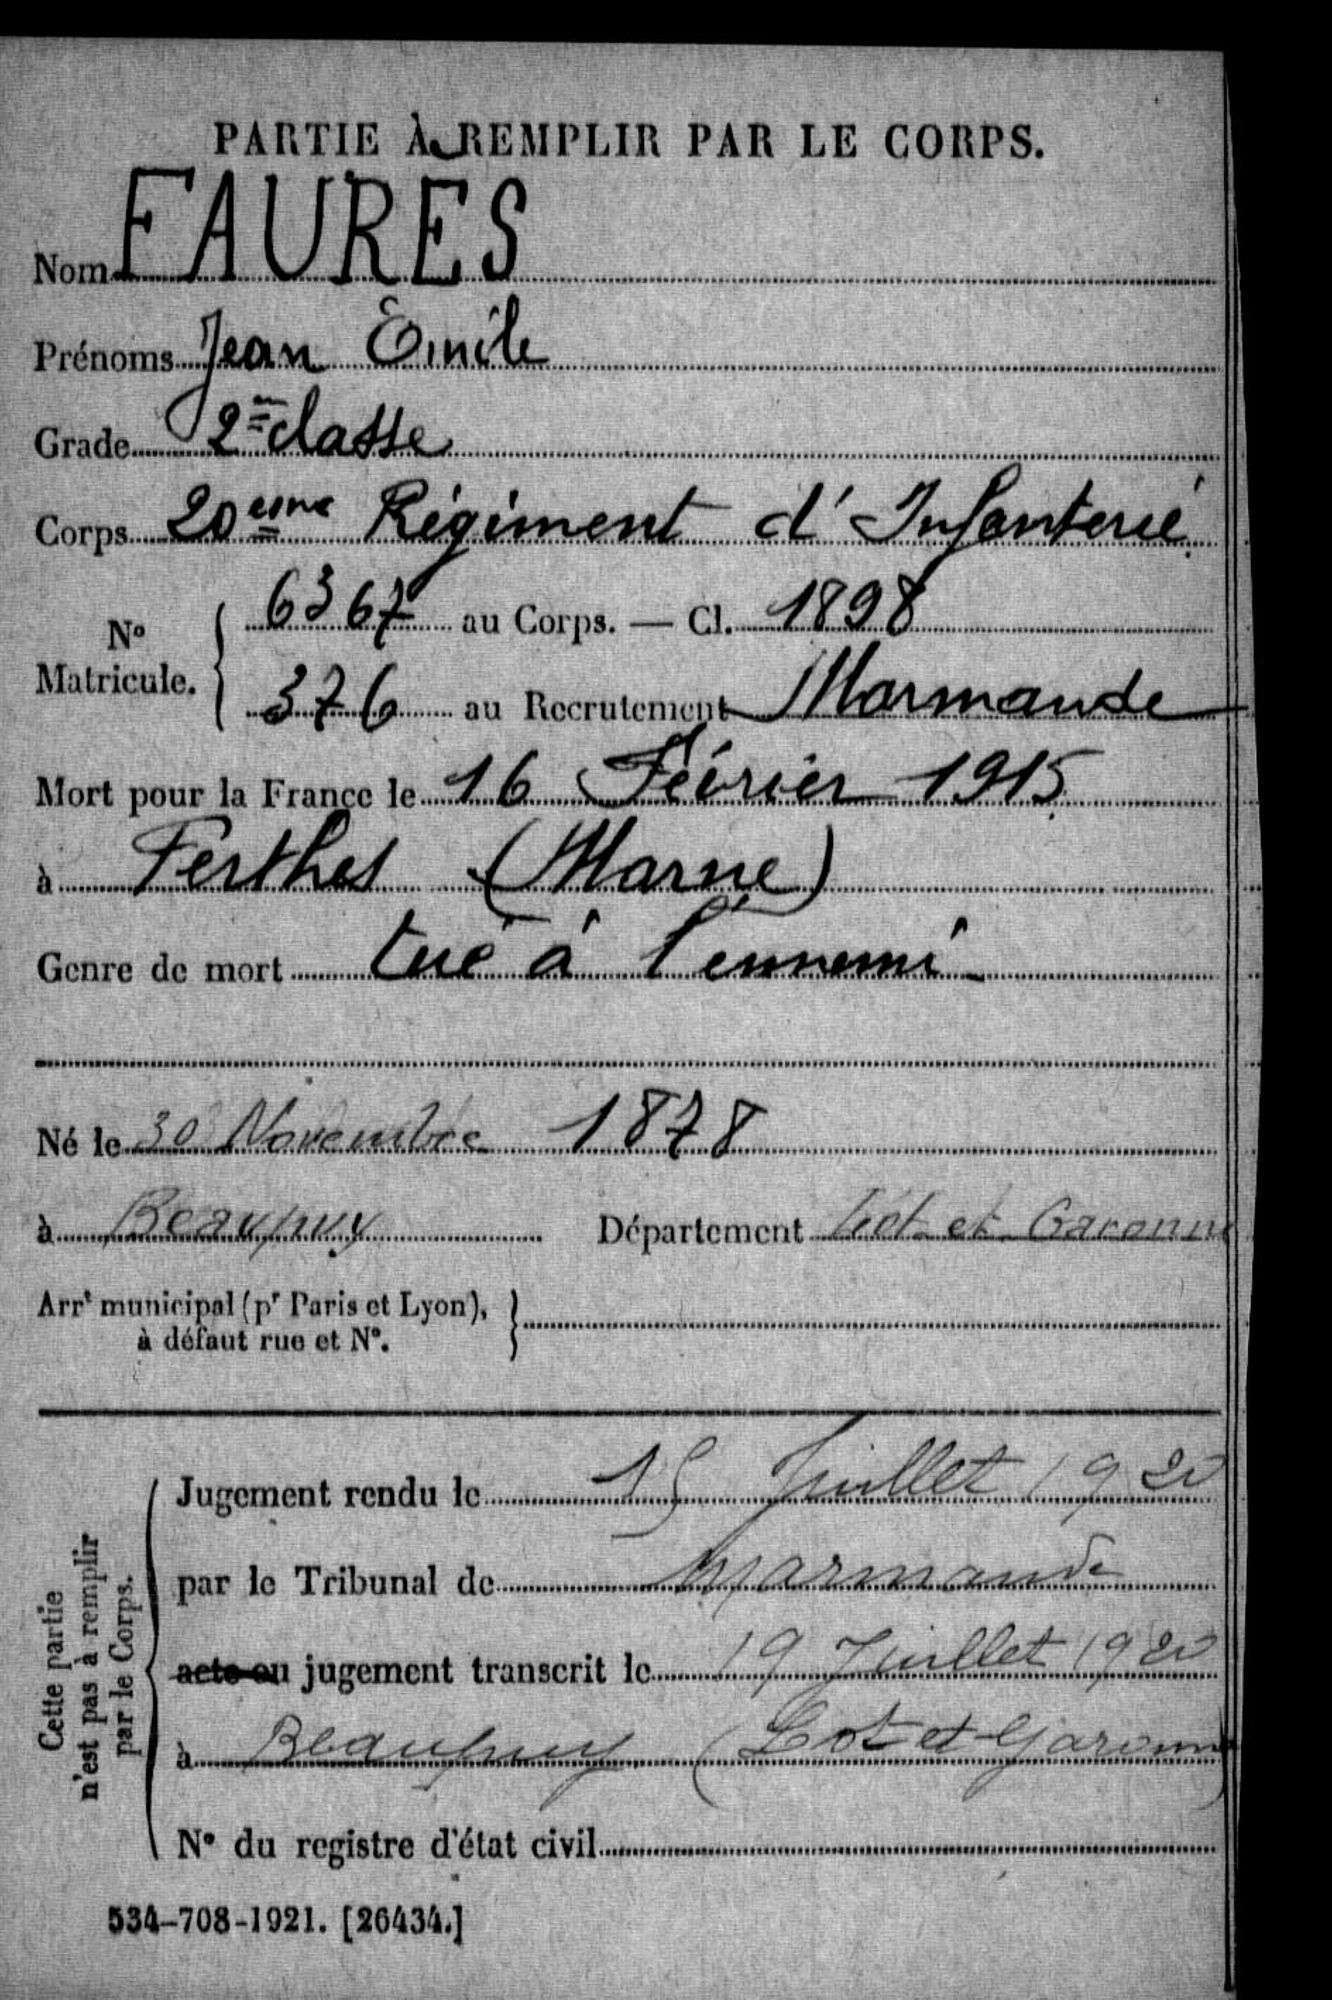 PARTIE À REMPLIR PAR LE CORPS.
Nom FAURES
Prénoms Jean Émile
Grade 2me classe
Corps 20eme Régiment d'Infanterie
N° Matricule. 6367 au Corps. — Cl. 1898
376 au Recrutement Marmande
Mort pour la France le 16 Février 1915
à Perthes (Marne)
Genre de mort tué à l'ennemi
Né le 30 Novembre 1878
à Beaupuy Département Lot et Garonne
Arrt municipal (pr Paris et Lyon),
à défaut rue et N°.
Cette partie
n'est pas à remplir
par le Corps.
Jugement rendu le 15 Juillet 1920
par le Tribunal de Marmande
acte ou jugement transcrit le 19 Juillet 1920
à Beaupuy (Lot et Garonne)
N° du registre d'état civil
534-708-1921. [26434.]